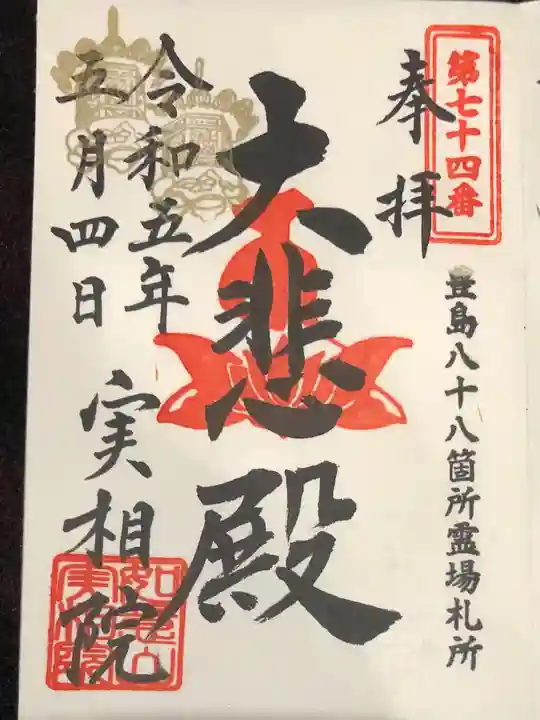 第七十四番
豊島八十八箇所霊場札所
奉拝
大悲殿
令和五年
五月四日
実相院